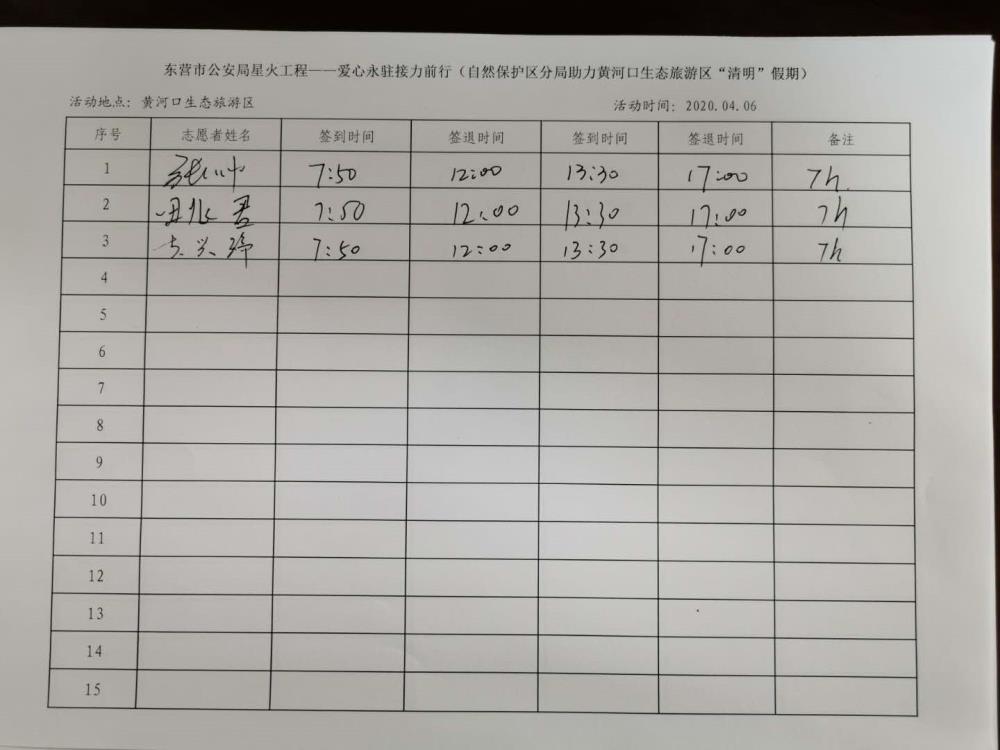 东营市公安局星火工程——爱心永驻接力前行（自然保护区分局助力黄河口生态旅游区“清明”假期）
活动地点：黄河口生态旅游区 活动时间：2020.04.06
序号 志愿者姓名 签到时间 签退时间 签到时间 签退时间 备注
1 7:50 12:00 13:30 17:00 7h.
2 7:50 12:00 13:30 17:00 7h
3 7:50 12:00 13:30 17:00 7h
4
5
6
7
8
9
10
11
12
13
14
15